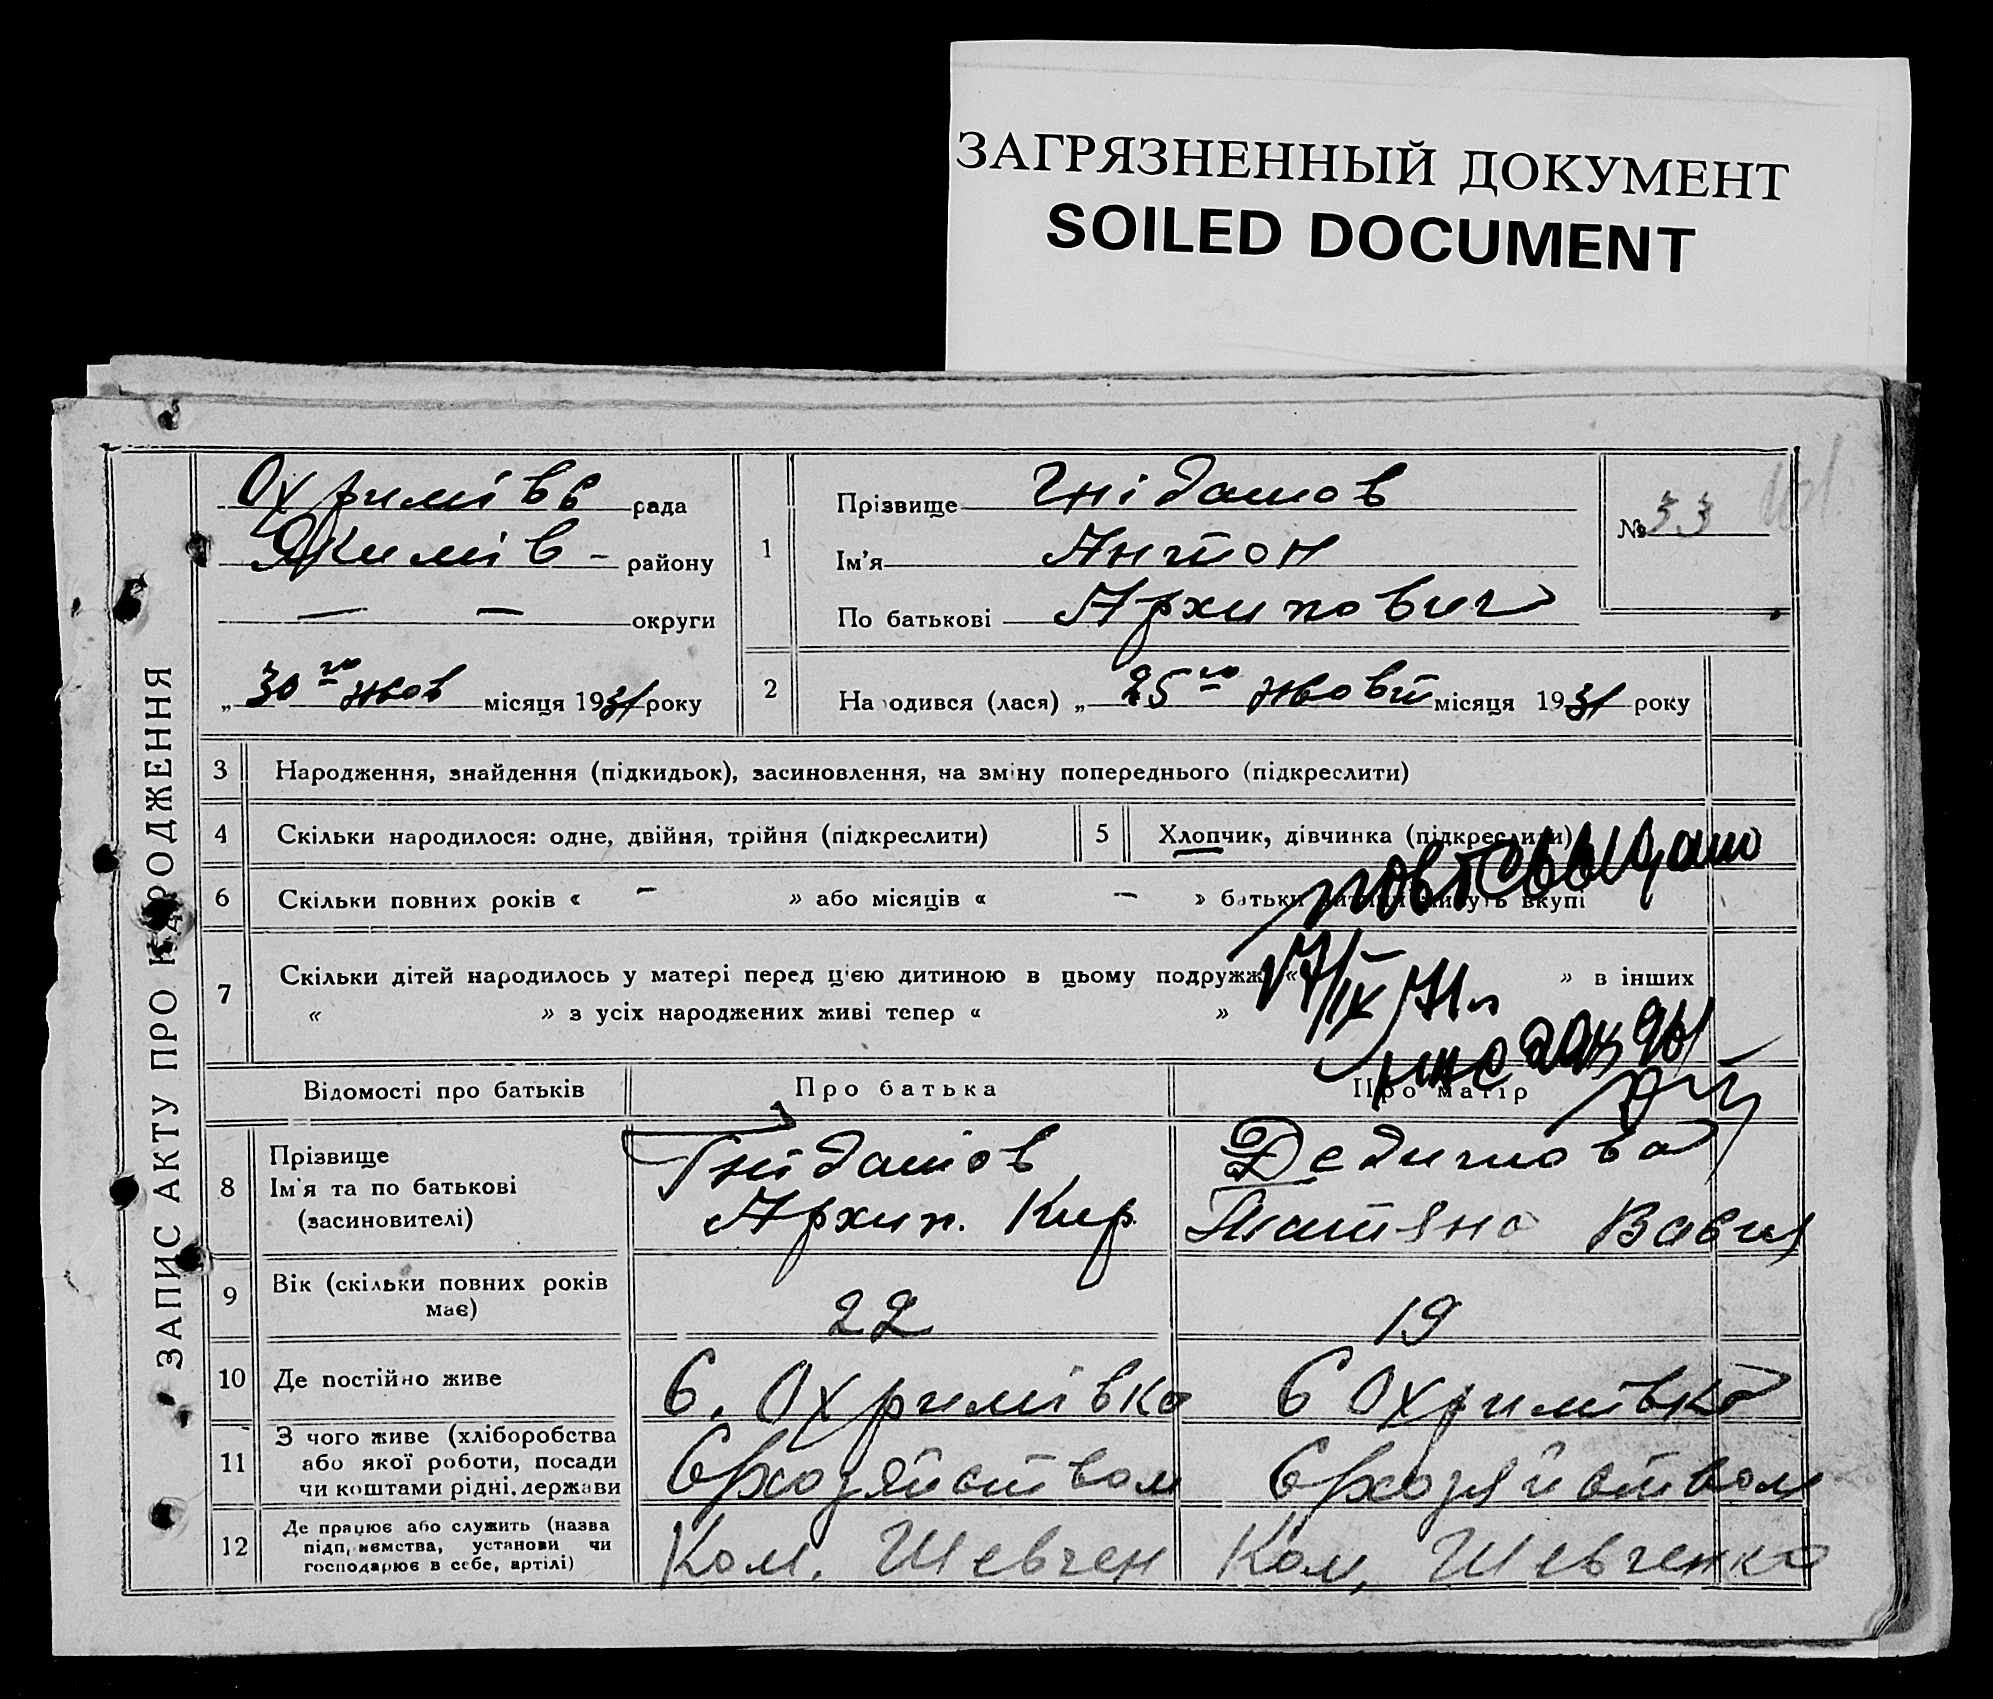 ЗАГРЯЗНЕННЫЙ ДОКУМЕНТ
SOILED DOCUMENT
ЗАПИС АКТУ ПРО НАРОДЖЕННЯ
Охримівс рада
Якимів - району
— — округи
„ 30го жов місяця 1931 року
1
Прізвище Гнідашов
Ім'я Антон
По батькові Архипович
№ 33
2 Народився (лася) „ 25го жовт місяця 1931 року
3 Народження, знайдення (підкидьок), засиновлення, на зміну попереднього (підкреслити)
4 Скільки народилося: одне, двійня, трійня (підкреслити)
5 Хлопчик, дівчинка (підкреслити)
6 Скільки повних років « — » або місяців « — » батьки дитини живуть вкупі
7 Скільки дітей народилось у матері перед цією дитиною в цьому подружжі « » в інших
« » з усіх народжених живі тепер « »
17/IX 71г
Відомості про батьків Про батька Про матір
8 Прізвище
Ім'я та по батькові
(засиновителі)
Гнідашов
Архип. Кир.
Татяна
9 Вік (скільки повних років
має)
22 19
10 Де постійно живе С. Охримівка С Охримівка
11 З чого живе (хліборобства
або якої роботи, посади
чи коштами рідні, держави
Срхозяйством Срхозяйством
12 Де працює або служить (назва
підприємства, установи чи
господарює в себе, артілі)
Ком. Шевчен Ком. Шевченко